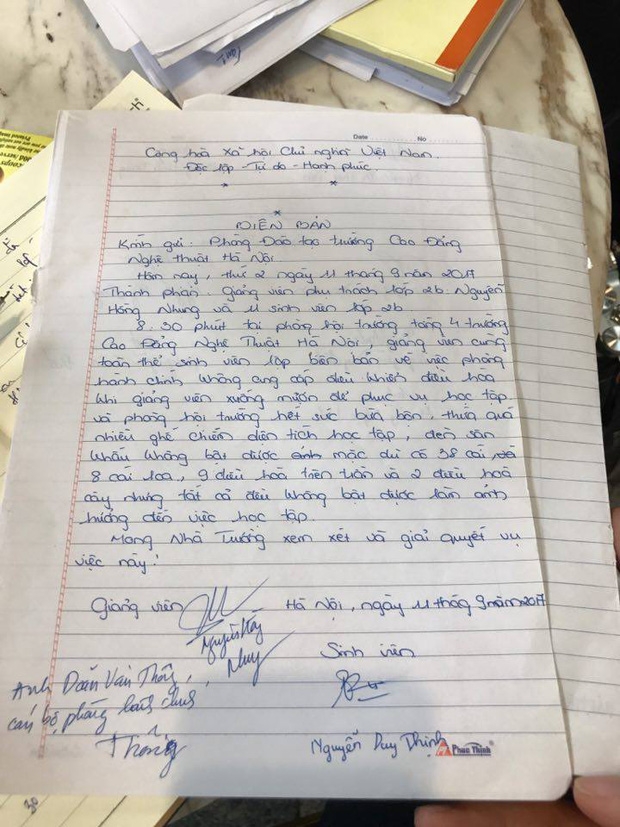 Date No
Cộng hòa Xã hội Chủ nghĩa Việt Nam.
Độc lập - Tự do - Hạnh phúc.
BIÊN BẢN
Kính gửi: Phòng Đào tạo trường Cao Đẳng
Nghệ thuật Hà Nội.
Hôm nay, thứ 2 ngày 11 tháng 9 năm 2017
Thành phần: Giảng viên phụ trách lớp 2b. Nguyễn
Hồng Nhung và 11 sinh viên lớp 2b
8.30 phút tại phòng hội trường tầng 4 trường
Cao Đẳng Nghệ Thuật Hà Nội, giảng viên cùng
toàn thể sinh viên lập biên bản về việc phòng
hành chính không cung cấp điều khiển điều hòa
khi giảng viên xuống mượn để phục vụ học tập
và phòng hội trường hết sức bừa bộn, thừa quá
nhiều ghế chiếm diện tích học tập, đèn sân
khấu không bật được mặc dù có 38 cái và
8 cái loa, 9 điều hoà trên trần và 2 điều hoà
cây nhưng tất cả đều không bật được làm ảnh
hưởng đến việc học tập.
Mong Nhà Trường xem xét và giải quyết vụ
việc này!
Giảng viên Hà Nội, ngày 11 tháng 9 năm 2017
Nguyễn Hồng
Nhung
Sinh viên
Anh Doãn Văn Thông,
cán bộ phòng hành chính
Thông
Nguyễn Duy Thịnh
Phan Thịnh
30